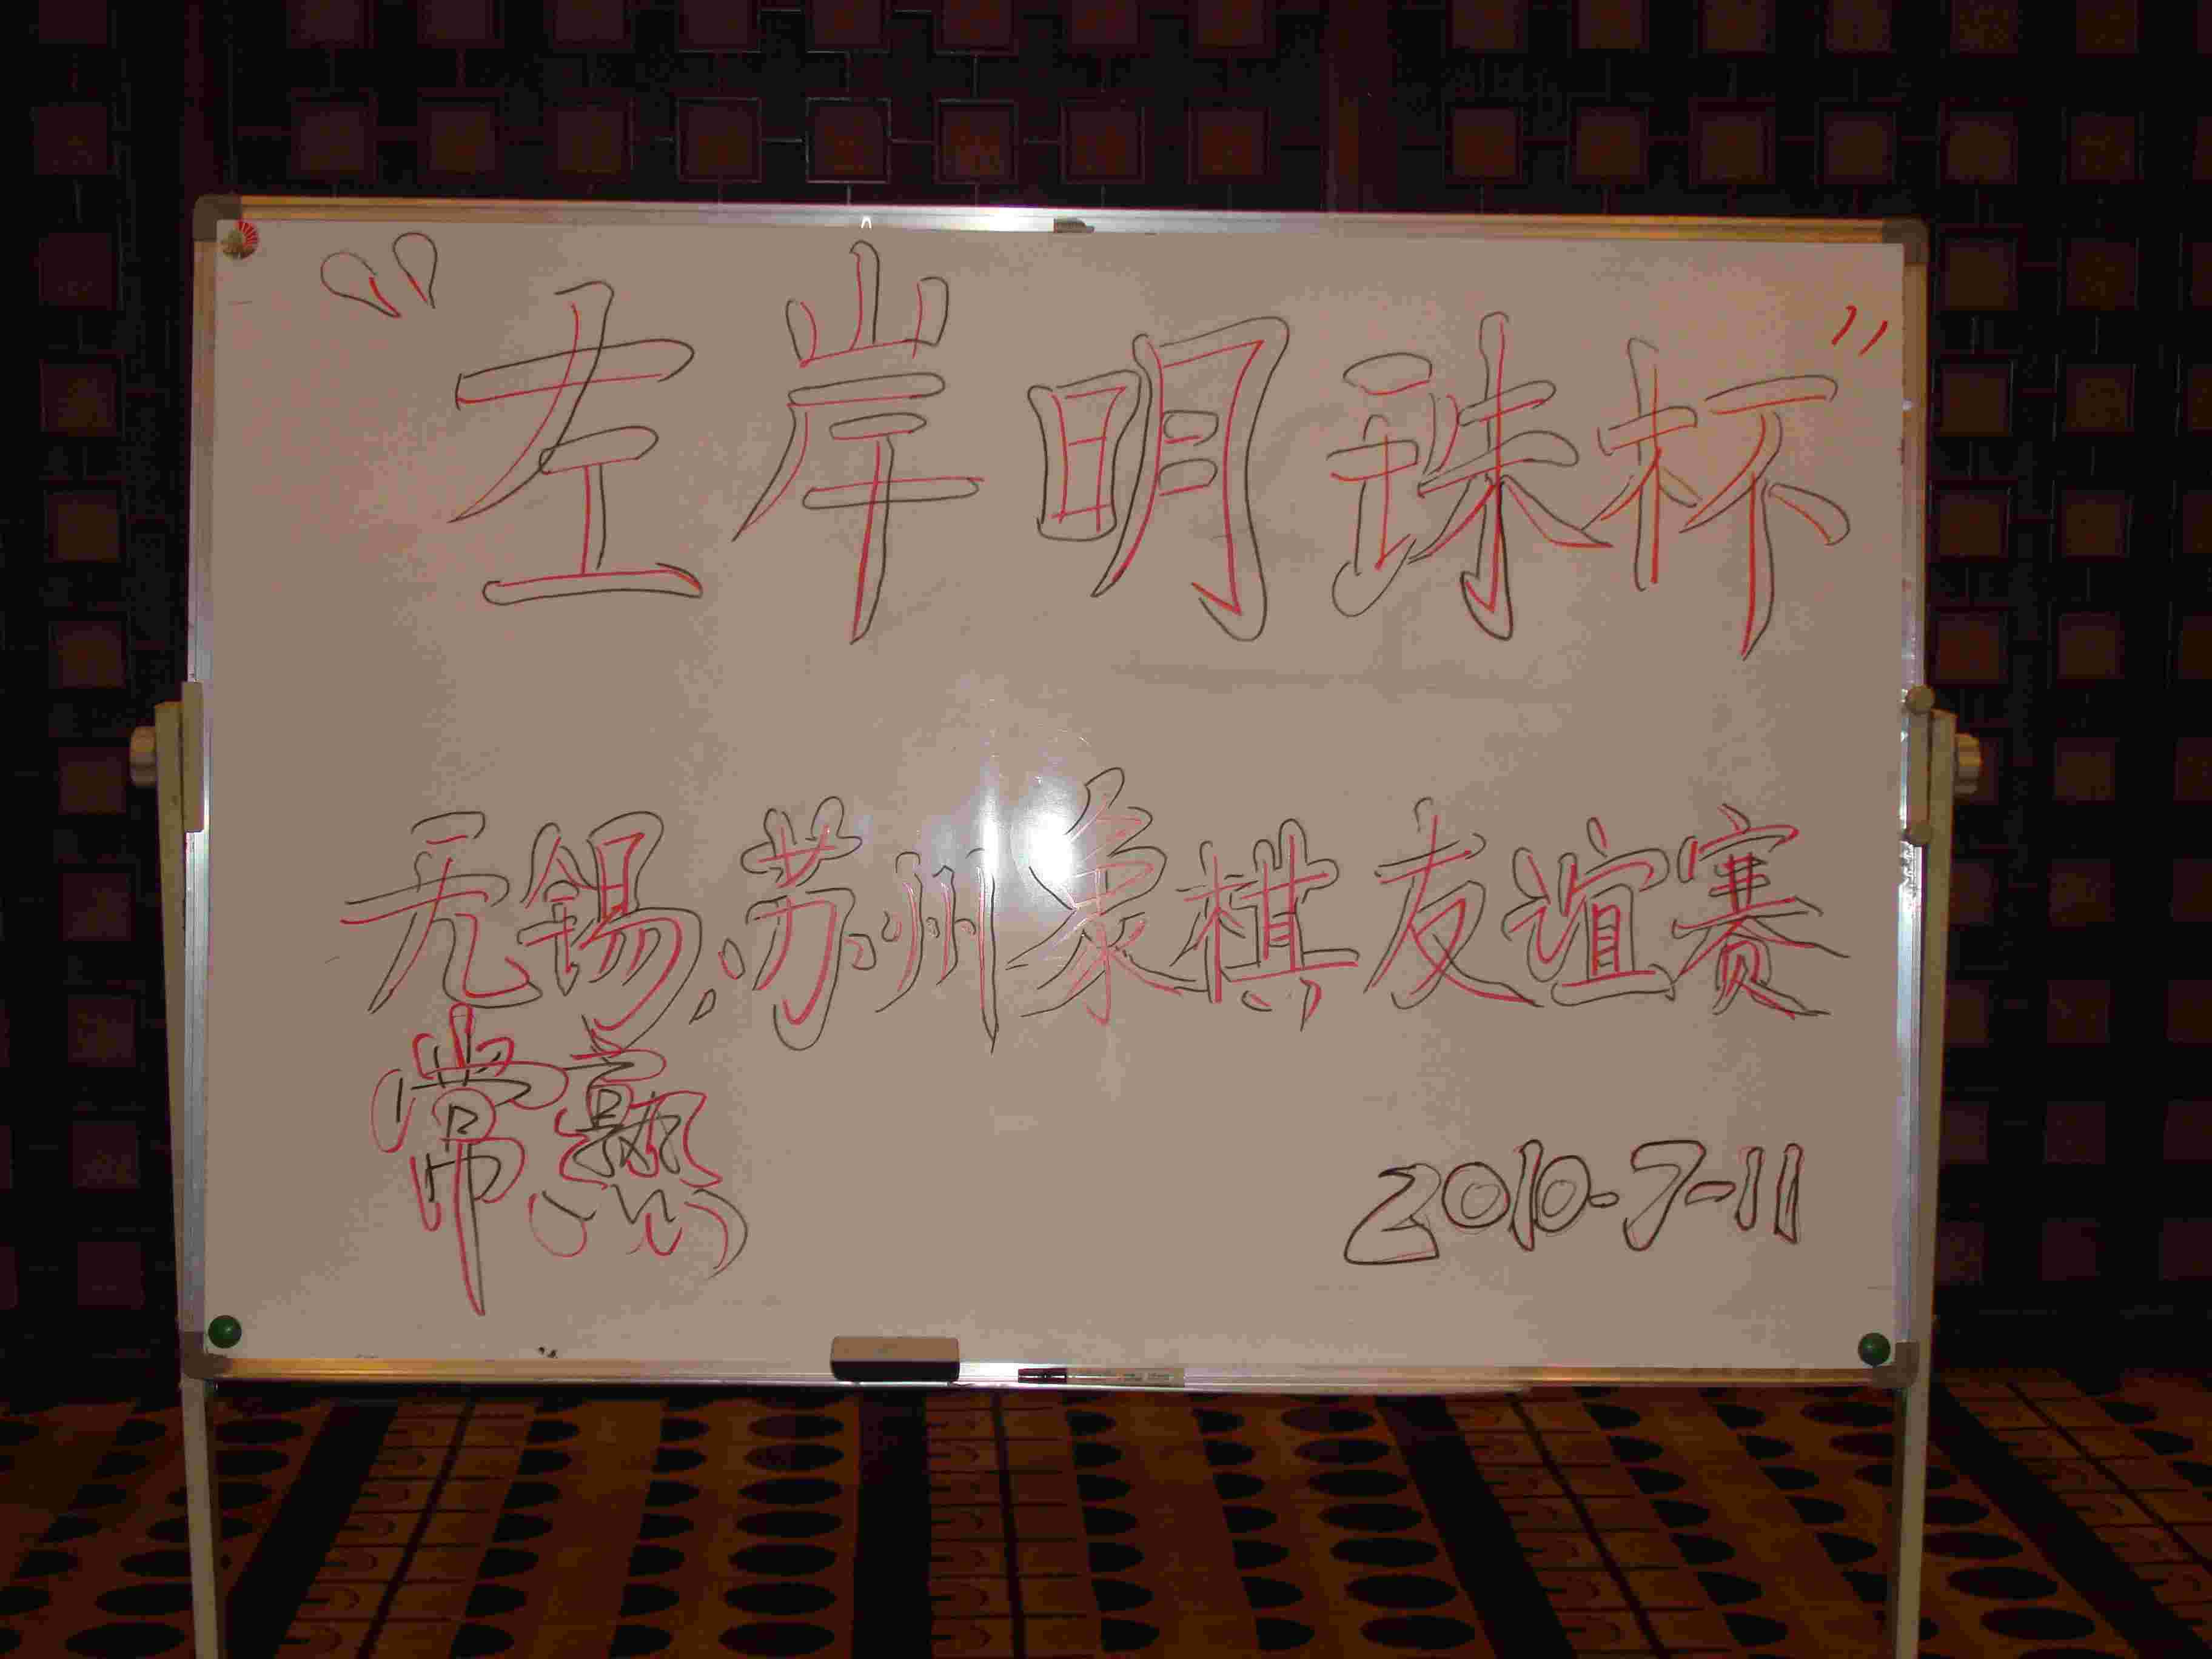 “左岸明珠杯”
无锡、苏州象棋友谊赛
常熟
2010-7-11